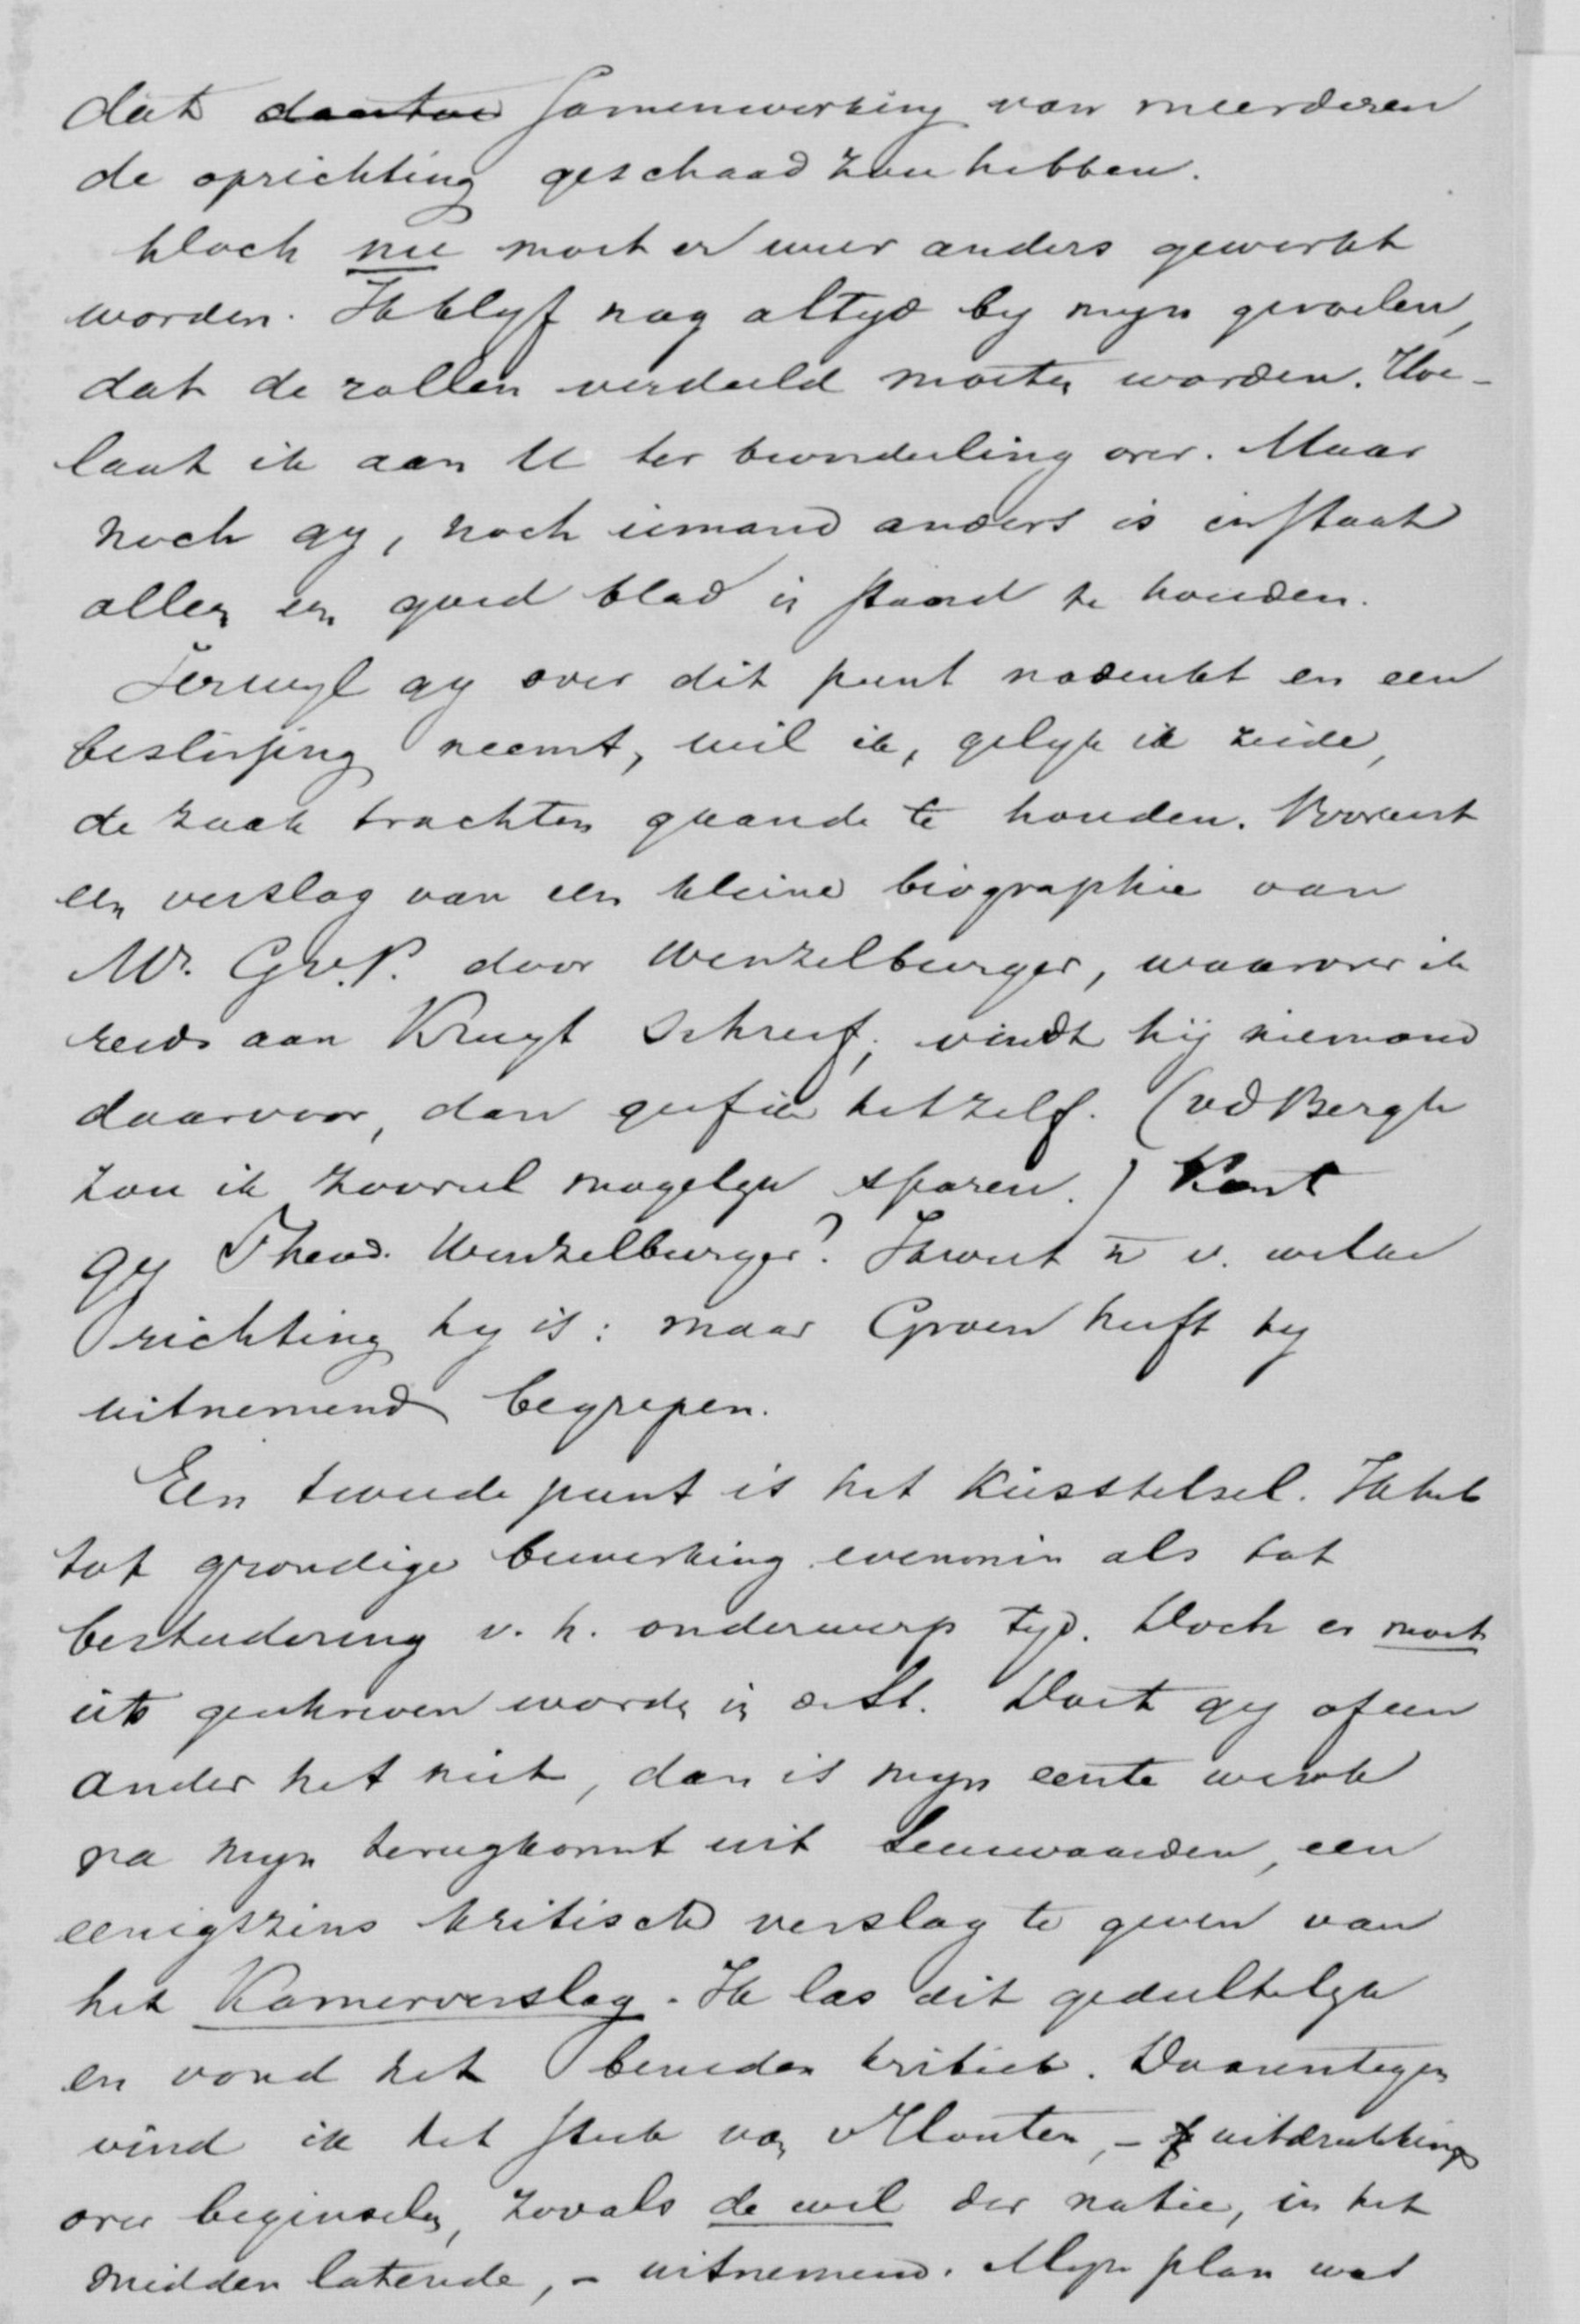 dat daartoe samenwerking van meerderen
de oprichting geschaad zou hebben.
Doch nu moet er weer anders gewerkt
worden. Ik blyf nog altyd by myn gevoelen,
dat de rollen verdeeld moeten worden. Hoe -
laat ik aan U ter beoordeeling over. Maar
noch gy, noch iemand anders is in staat
alleen een goed blad in stand te houden.
Terwyl gy over dit punt nadenkt en een
beslissing neemt, wil ik, gelyk ik zeide,
de zaak trachten gaande te houden. Vooreerst
een verslag van een kleine biographie van
Mr. Gr.v.P. door Wenzelburger, waarover ik
reeds aan Kruyt schreef; vindt hij niemand
daarvoor, dan geef ik het zelf. (vd Bergh
zou ik zooveel mogelyk sparen.) Kent
gy Theod. Wenzelburger? Ik weet n v. welke
richting hy is: maar Groen heeft hy
uitnemend begrepen.
Een tweede punt is het Kiesstelsel. Ik heb
tot grondige bewerking evenmin als tot
bestudering v. h. onderwerp tyd. Doch er moet
iets geschreven worden in de St. Doet gy of een
ander het niet, dan is myn eerste werk
na myn terugkomst uit Leeuwaarden, een
eenigszins kritisch verslag te geven van
het Kamerverslag. Ik las dit gedeeltelyk
en vond het beneden kritiek. Daarentegen
vind ik het stuk van v Houten, - uitdrukking
over beginselen, zooals de wil der natie, in het
midden latende, - uitnemend. Myn plan was